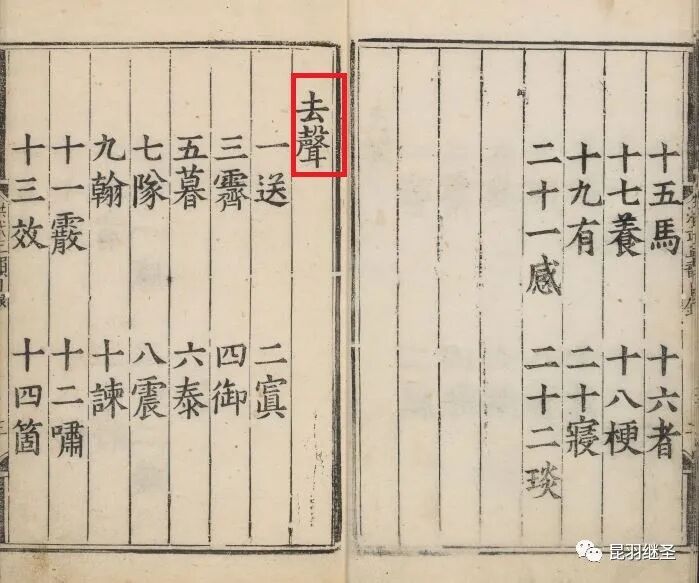 十五馬 十六者
十七養 十八梗
十九有 二十寢
二十一感 二十二琰
去聲
一送 二寘
三霽 四御
五暮 六泰
七隊 八震
九翰 十諫
十一霰 十二嘯
十三效 十四箇
昆羽继圣